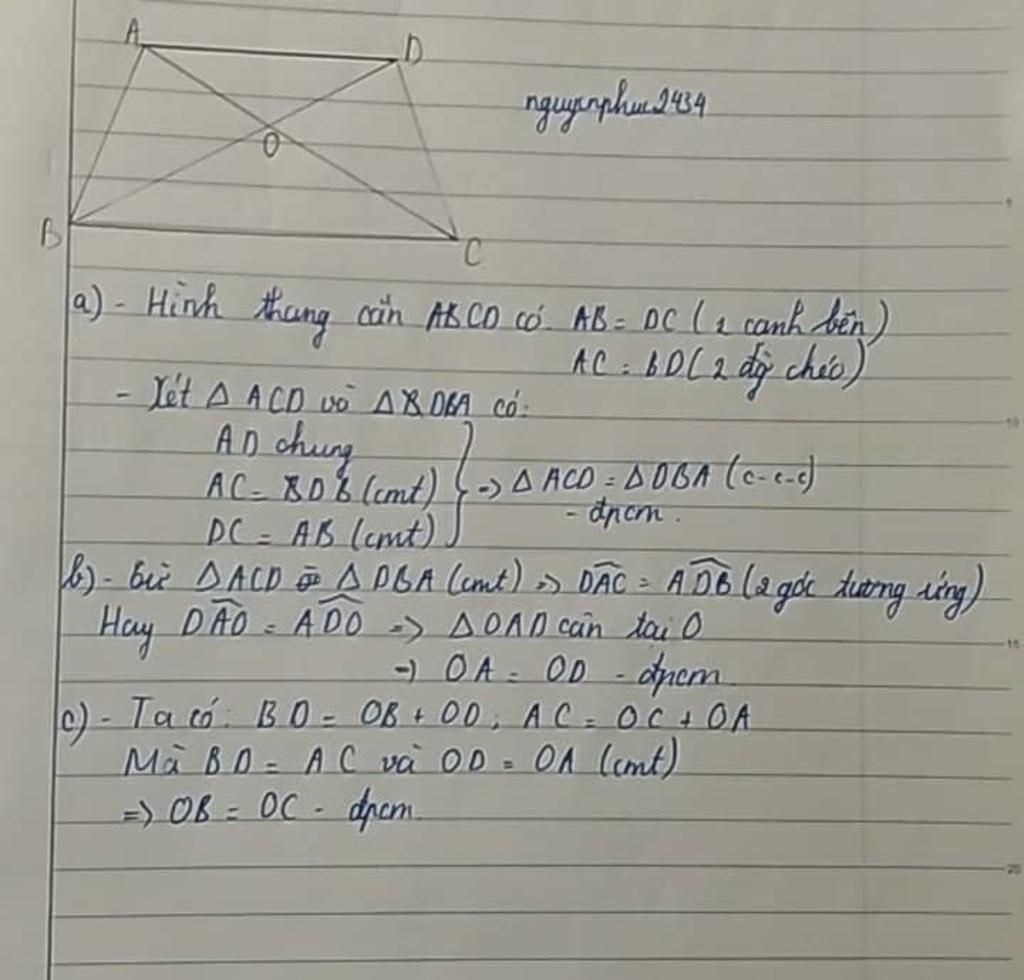 A
D
nguyenphuc2434
O
B
C
a) - Hình thang cân ABCD có AB = DC (2 cạnh bên)
AC = BD (2 đg chéo)
- Xét △ ACD và △ DBA có:
AD chung
AC = DB (cmt)
DC = AB (cmt)
=> △ ACD = △ DBA (c-c-c)
- đpcm.
b) - Bài △ ACD = △ DBA (cmt) => DAC = ADB (2 góc tương ứng)
Hay DAO = ADO => △ OAD cân tại O
=> OA = OD - đpcm
c) - Ta có: BD = OB + OD; AC = OC + OA
Mà BD = AC và OD = OA (cmt)
=> OB = OC - đpcm.